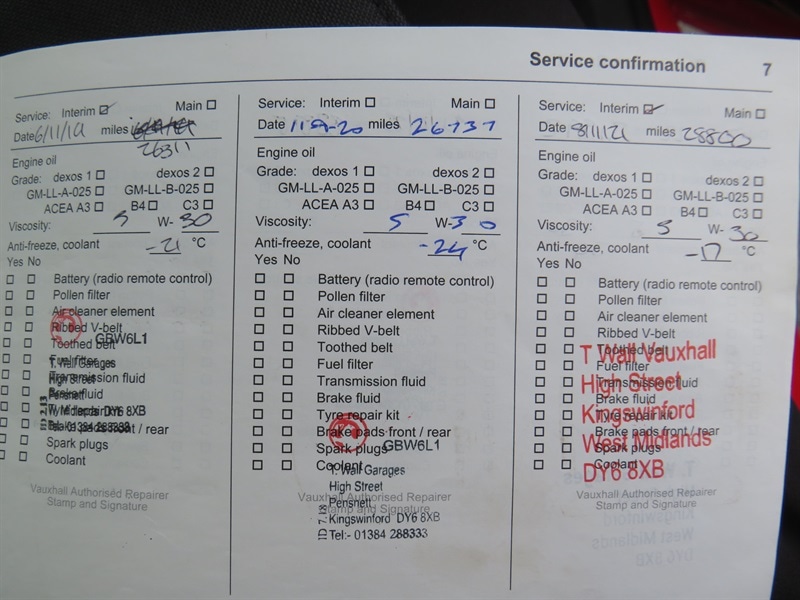 Service confirmation 7
Service: Interim ☑ Main ☐
Date 6/11/19 miles
26311
Engine oil
Grade: dexos 1 ☐ dexos 2 ☐
GM-LL-A-025 ☐ GM-LL-B-025 ☐
ACEA A3 ☐ B4 ☐ C3 ☐
Viscosity: 5 W- 30
Anti-freeze, coolant -21 °C
Yes No
☐ ☐ Battery (radio remote control)
☐ ☐ Pollen filter
☐ ☐ Air cleaner element
☐ ☐ Ribbed V-belt
☐ ☐ Toothed belt
☐ ☐ Fuel filter
☐ ☐ Transmission fluid
☐ ☐ Brake fluid
☐ ☐ Tyre repair kit
☐ ☐ Brake pads front / rear
☐ ☐ Spark plugs
☐ ☐ Coolant
GBW6L1
T. Wall Garages
High Street
Pensnett
DY6 8XB
Tel:- 01384 288333
Vauxhall Authorised Repairer
Stamp and Signature
Service: Interim ☐ Main ☐
Date 11-9-20 miles 26737
Engine oil
Grade: dexos 1 ☐ dexos 2 ☐
GM-LL-A-025 ☐ GM-LL-B-025 ☐
ACEA A3 ☐ B4 ☐ C3 ☐
Viscosity: 5 W- 30
Anti-freeze, coolant -24 °C
Yes No
☐ ☐ Battery (radio remote control)
☐ ☐ Pollen filter
☐ ☐ Air cleaner element
☐ ☐ Ribbed V-belt
☐ ☐ Toothed belt
☐ ☐ Fuel filter
☐ ☐ Transmission fluid
☐ ☐ Brake fluid
☐ ☐ Tyre repair kit
☐ ☐ Brake pads front / rear
☐ ☐ Spark plugs
☐ ☐ Coolant
GBW6L1
T. Wall Garages
High Street
Pensnett
Kingswinford DY6 8XB
Tel:- 01384 288333
Vauxhall Authorised Repairer
Stamp and Signature
Service: Interim ☑ Main ☐
Date 8/11/21 miles 28800
Engine oil
Grade: dexos 1 ☐ dexos 2 ☐
GM-LL-A-025 ☐ GM-LL-B-025 ☐
ACEA A3 ☐ B4 ☐ C3 ☐
Viscosity: 5 W- 30
Anti-freeze, coolant -17 °C
Yes No
☐ ☐ Battery (radio remote control)
☐ ☐ Pollen filter
☐ ☐ Air cleaner element
☐ ☐ Ribbed V-belt
☐ ☐ Toothed belt
☐ ☐ Fuel filter
☐ ☐ Transmission fluid
☐ ☐ Brake fluid
☐ ☐ Tyre repair kit
☐ ☐ Brake pads front / rear
☐ ☐ Spark plugs
☐ ☐ Coolant
T Wall Vauxhall
High Street
Kingswinford
West Midlands
DY6 8XB
Vauxhall Authorised Repairer
Stamp and Signature